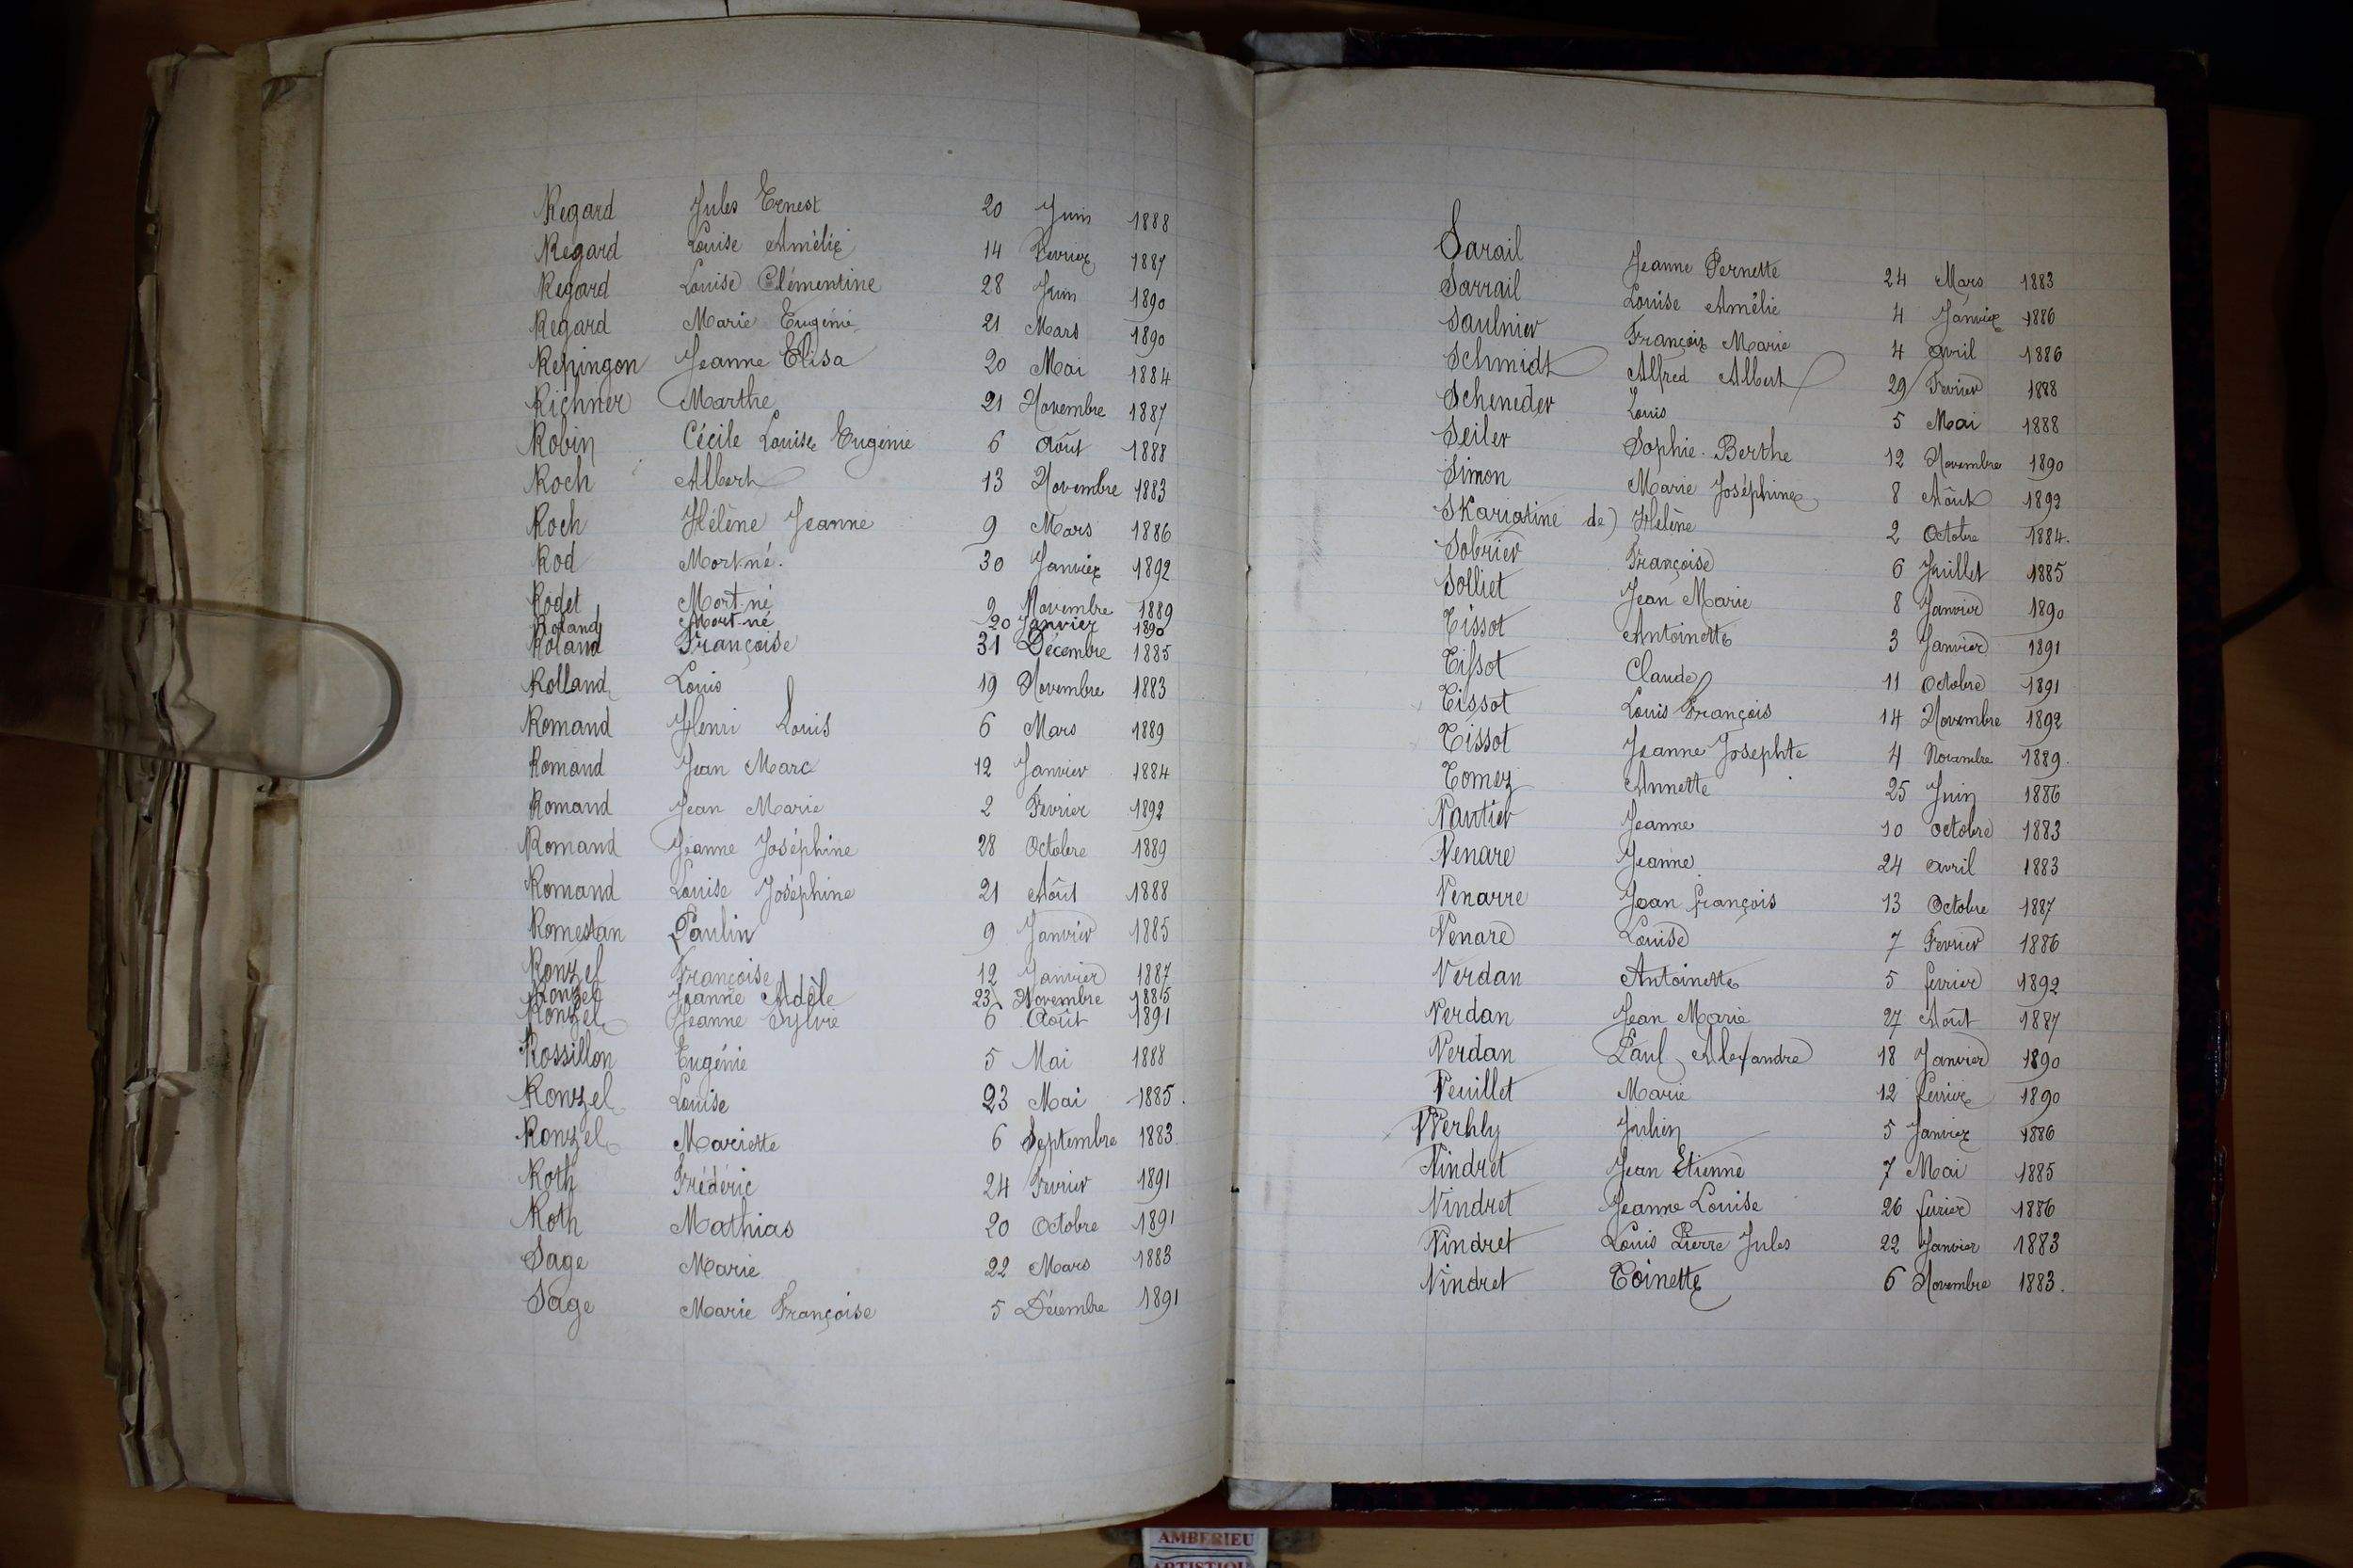 Regard Jules Ernest 20 Juin 1888
Regard Louise Amélie 14 Fevrier 1887
Regard Louise Clémentine 28 Juin 1890
Regard Marie Eugénie 21 Mars 1890
Repingon Jeanne Elisa 20 Mai 1884
Richner Marthe 21 Novembre 1887
Robin Cécile Louise Eugénie 6 Août 1888
Roch Albert 13 Novembre 1883
Roch Hélène Jeanne 9 Mars 1886
Rod Mort-né. 30 Janvier 1892
Rodet Mort-né 9 Novembre 1889
Roland Mort-né 20 Janvier 1890
Roland Françoise 31 Décembre 1885
Rolland Louis 19 Novembre 1883
Romand Henri Louis 6 Mars 1889
Romand Jean Marc 12 Janvier 1884
Romand Jean Marie 2 Fevrier 1892
Romand Jeanne Joséphine 28 Octobre 1889
Romand Louise Joséphine 21 Août 1888
Romestan Paulin 9 Janvier 1885
Ronzel Françoise 12 Janvier 1887
Ronzel Jeanne Adèle 23 Novembre 1885
Ronzel Jeanne Sylvie 6 Août 1891
Rossillon Eugénie 5 Mai 1888
Ronzel Louise 23 Mai 1885.
Ronzel Mariette 6 Septembre 1883
Roth Frédéric 24 Fevrier 1891
Roth Mathias 20 Octobre 1891
Sage Marie 22 Mars 1883
Sage Marie Françoise 5 Décembre 1891
Sarail Jeanne Pernette 24 Mars 1883
Sarrail Louise Amélie 4 Janvier 1886
Saulnier François Marie 4 avril 1886
Schmidt Alfred Albert 29 Fevrier 1888
Scheneder Louis 5 Mai 1888
Seiler Sophie. Berthe 12 Novembre 1890
Simon Marie Joséphine 8 Août 1892
SKariatine de) Hélène 2 Octobre 1884.
Sobrier Françoise 6 Juillet 1885
Solliet Jean Marie 8 Janvier 1890
Tissot Antoinette 3 Janvier 1891
Tissot Claude 11 Octobre 1891
Tissot Louis François 14 Novembre 1892
Tissot Jeanne Josephte 4 Novembre 1889.
Tomez Annette 25 Juin 1886
Vautier Jeanne 10 octobre 1883
Venare Jeanne 24 avril 1883
Venarre Jean françois 13 Octobre 1887
Venare Louise 7 Fevrier 1886
Verdan Antoinette 5 fevrier 1892
Verdan Jean Marie 27 Août 1887
Verdan Paul Alexandre 18 Janvier 1890
Veuillet Marie 12 fevrier 1890
Werhly Julien 5 Janvier 1886
Vindret Jean Etienne 7 Mai 1885
Vindret Jeanne Louise 26 fevrier 1886
Vindret Louis Pierre Jules 22 Janvier 1883
Vindret Toinette 6 Novembre 1883.
AMBERIEU